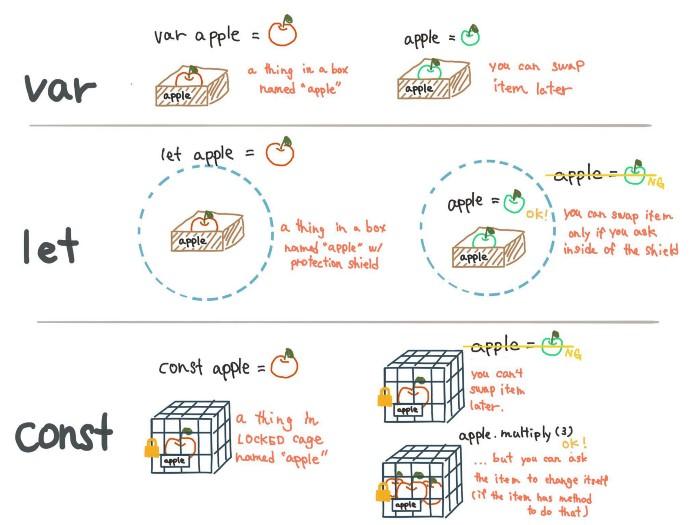 var
var apple =
apple
a thing in a box
named "apple"
apple =
apple
you can swap
item later
let
let apple =
apple
a thing in a box
named "apple" w/
protection shield
apple =
ok!
apple
apple =
NG
you can swap item
only if you ask
inside of the shield
const
const apple =
apple
a thing in
LOCKED cage
named "apple"
apple
apple =
NG
you can't
swap item
later.
apple.multiply(3)
ok!
apple
... but you can ask
the item to change itself
(if the item has method
to do that)